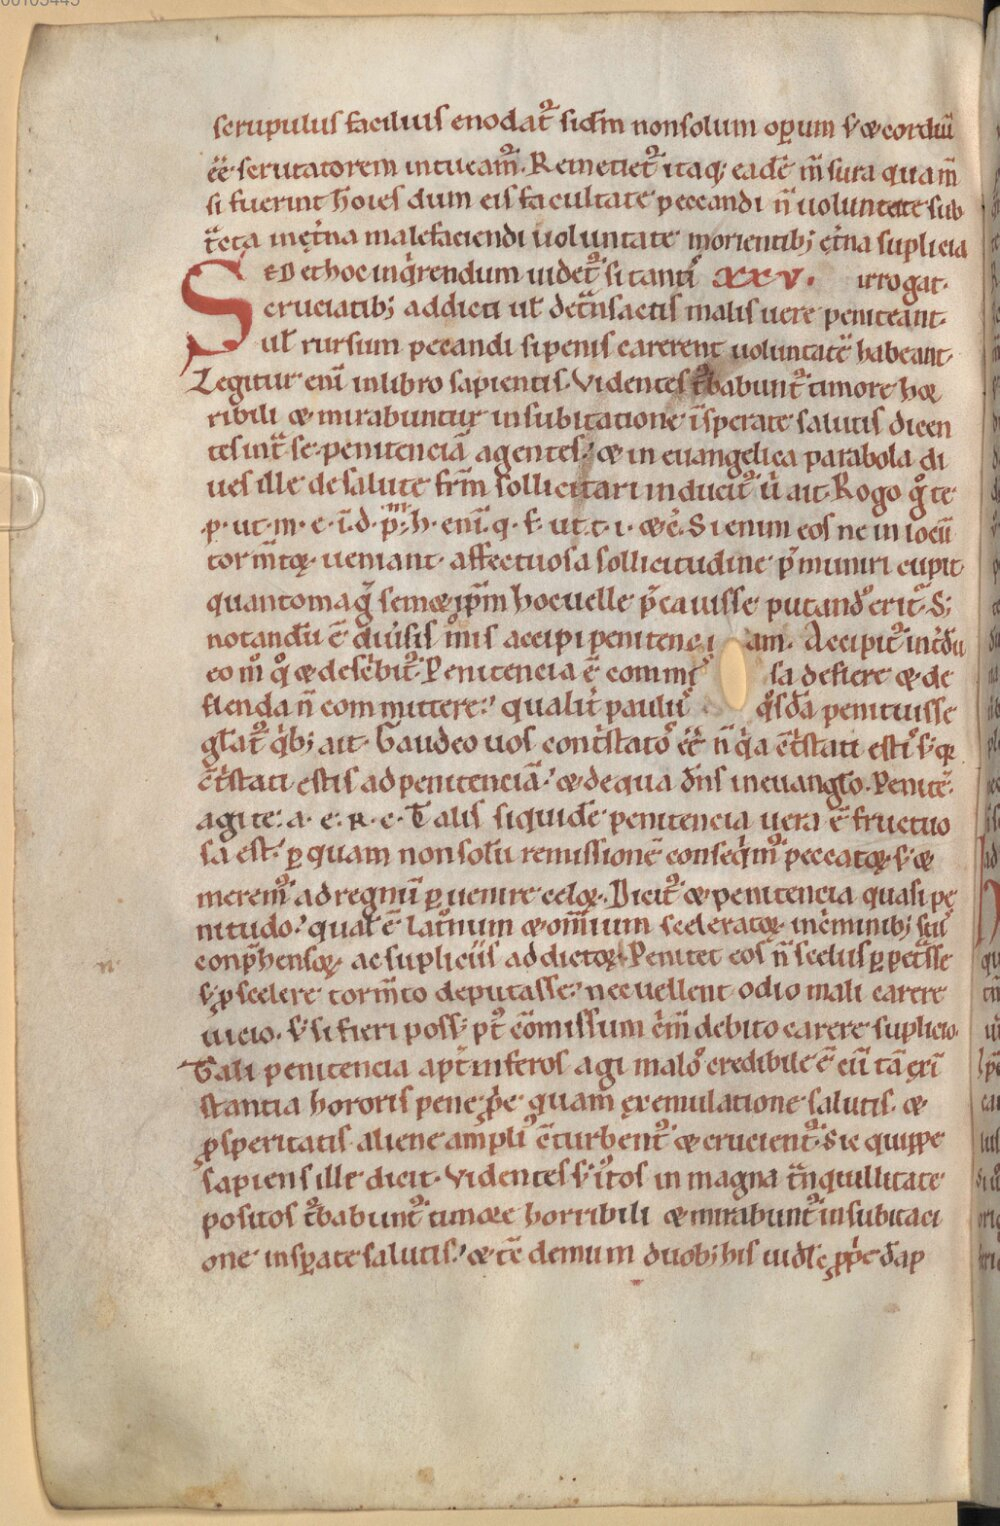 scrupulus facilius enodat᷑ si dm̄ non solum oꝑum sꝫ & cordiū
ēē scrutatorem intueam᷑. Remetiet᷑ itaq; eadē m̄sura quam
si fuerint hoies dum eis facultate peccandi n̄ uoluntate sub
t̄cta in et̄na malefaciendi uoluntate morientib; et̄na suplicia
SED et hoc inq̇rendum uidet᷑ si tanti XXV. irrogat.
cruciatib; addicti ul̄ de t̄nsactis malis uere peniteant.
ul̄ rursum peccandi si penis carerent uoluntatē habeant.
Legitur enī in libro sapientis. Videntes t᷑babunt᷑ timore hor
ribili & mirabuntur in subitatione īsperate salutis dicen
tes int̄ se penitenciā agentes. & in euangelica parabola di
ues ille de salute fr̄m sollicitari inducit᷑ ū ait. Rogo g̊ te
p. ut. m. e. i. d. p. m. h. enī. q. f. ut. t. i. & ē. Si enim eos ne in locū
torm̄tor ueniant affectuosa sollicitudine p̄muniri cupit.
quanto mag̊ semet ip̄m hoc uelle p̄cauisse putand᷑ erit. S;
notandū ē diuisis m̊is accipi penitenci am. Accipit᷑ int̄dū
eo m̊ q̊ & desc̄bit᷑. Penitencia ē commi sa deflere & de
flenda n̄ committere. qualit̄ paulū q̊sdā penituisse
gl̄at᷑ q̇b; ait. Gaudeo uos cont̄stato᷑ ēē n̄ q̇a c̄t̄stati esti᷑ sꝫ q̄
c̄t̄stati estis ad penitenciā. & de qua dn̄s in euanglo. Penitē.
agite. a. e. R. c. Talis siquidē penitencia uera ē fructuo
sa est. ꝑ quam non solū remissionē conseq̇m᷑ peccator sꝫ &
merem᷑ ad regnū ꝑuenire celor. Dicit᷑ & penitencia quasi pe
nitudo. qual̄ ē lat᷑num & om̄ium sceleratorum in c̄minib; suis
conp̄hensor ac supliciis addictor. Penitet eos n̄ scelus ꝑpet̄sse
sꝫ ꝓ scelere torm̄to deputasse. nec uellent odio mali carere
uicio. sꝫ si fieri poss; pt᷑ cōmissum c̄m̄ debito carere suplicio.
Tali penitencia apt̄ inferos agi malo᷑ credibile ē cū tā ex̄i
stantia hororis pene ꝓpe quam ex emulatione salutis. &
ꝓsperitatis aliene ampli᷑ c̄turbent᷑ & crucient᷑. Sic quippe
sapiens ille dicit. Videntes s. i᷑tos in magna t̄nquillitate
positos t᷑babunt᷑ timore horribili & mirabunt᷑ in subitaci
one insꝑate salutis. & tē demum duob; his uidl̄c ꝓp̊e dap
n.